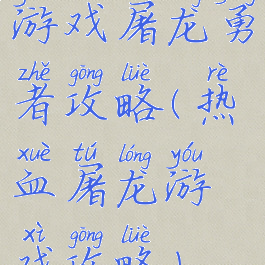 游戏屠龙勇
zhě gōng lüè rè
者攻略(热
xuè tú lóng yóu
血屠龙游
xì gōng lüè
戏攻略)